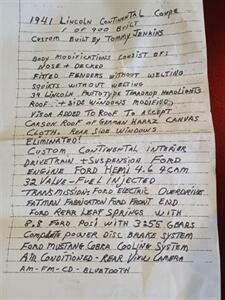 1941 Lincoln Continental Coupe
1 of 900 Built
Custom Built By Tommy Jenkins
Body Modifications Consist of:
Nose + Decked
Fitted Fenders Without Welting
Squirts Without Welting
39 Lincoln Prototype Teardrop Headlights
Roof + Side Windows Modified;
Visor Added To Roof To Accept
Carson Roof of German Haartz Canvas
Cloth. Rear Side Windows
Eliminated!
Custom Continental Interior
Drivetrain + Suspension Ford
Engine Ford Hemi 4.6 4cam
32 Valve - Fuel Injected
Transmission: Ford Electric Overdrive
Fatman Fabrication Ford Front End
Ford Rear Leaf Springs with
8.8 Ford Posi with 3255 Gears
Complete Power Disc Brake System
Ford Mustang Cobra Cooling System
Air Conditioned - Rear View Camera
AM-FM-CD-Bluetooth